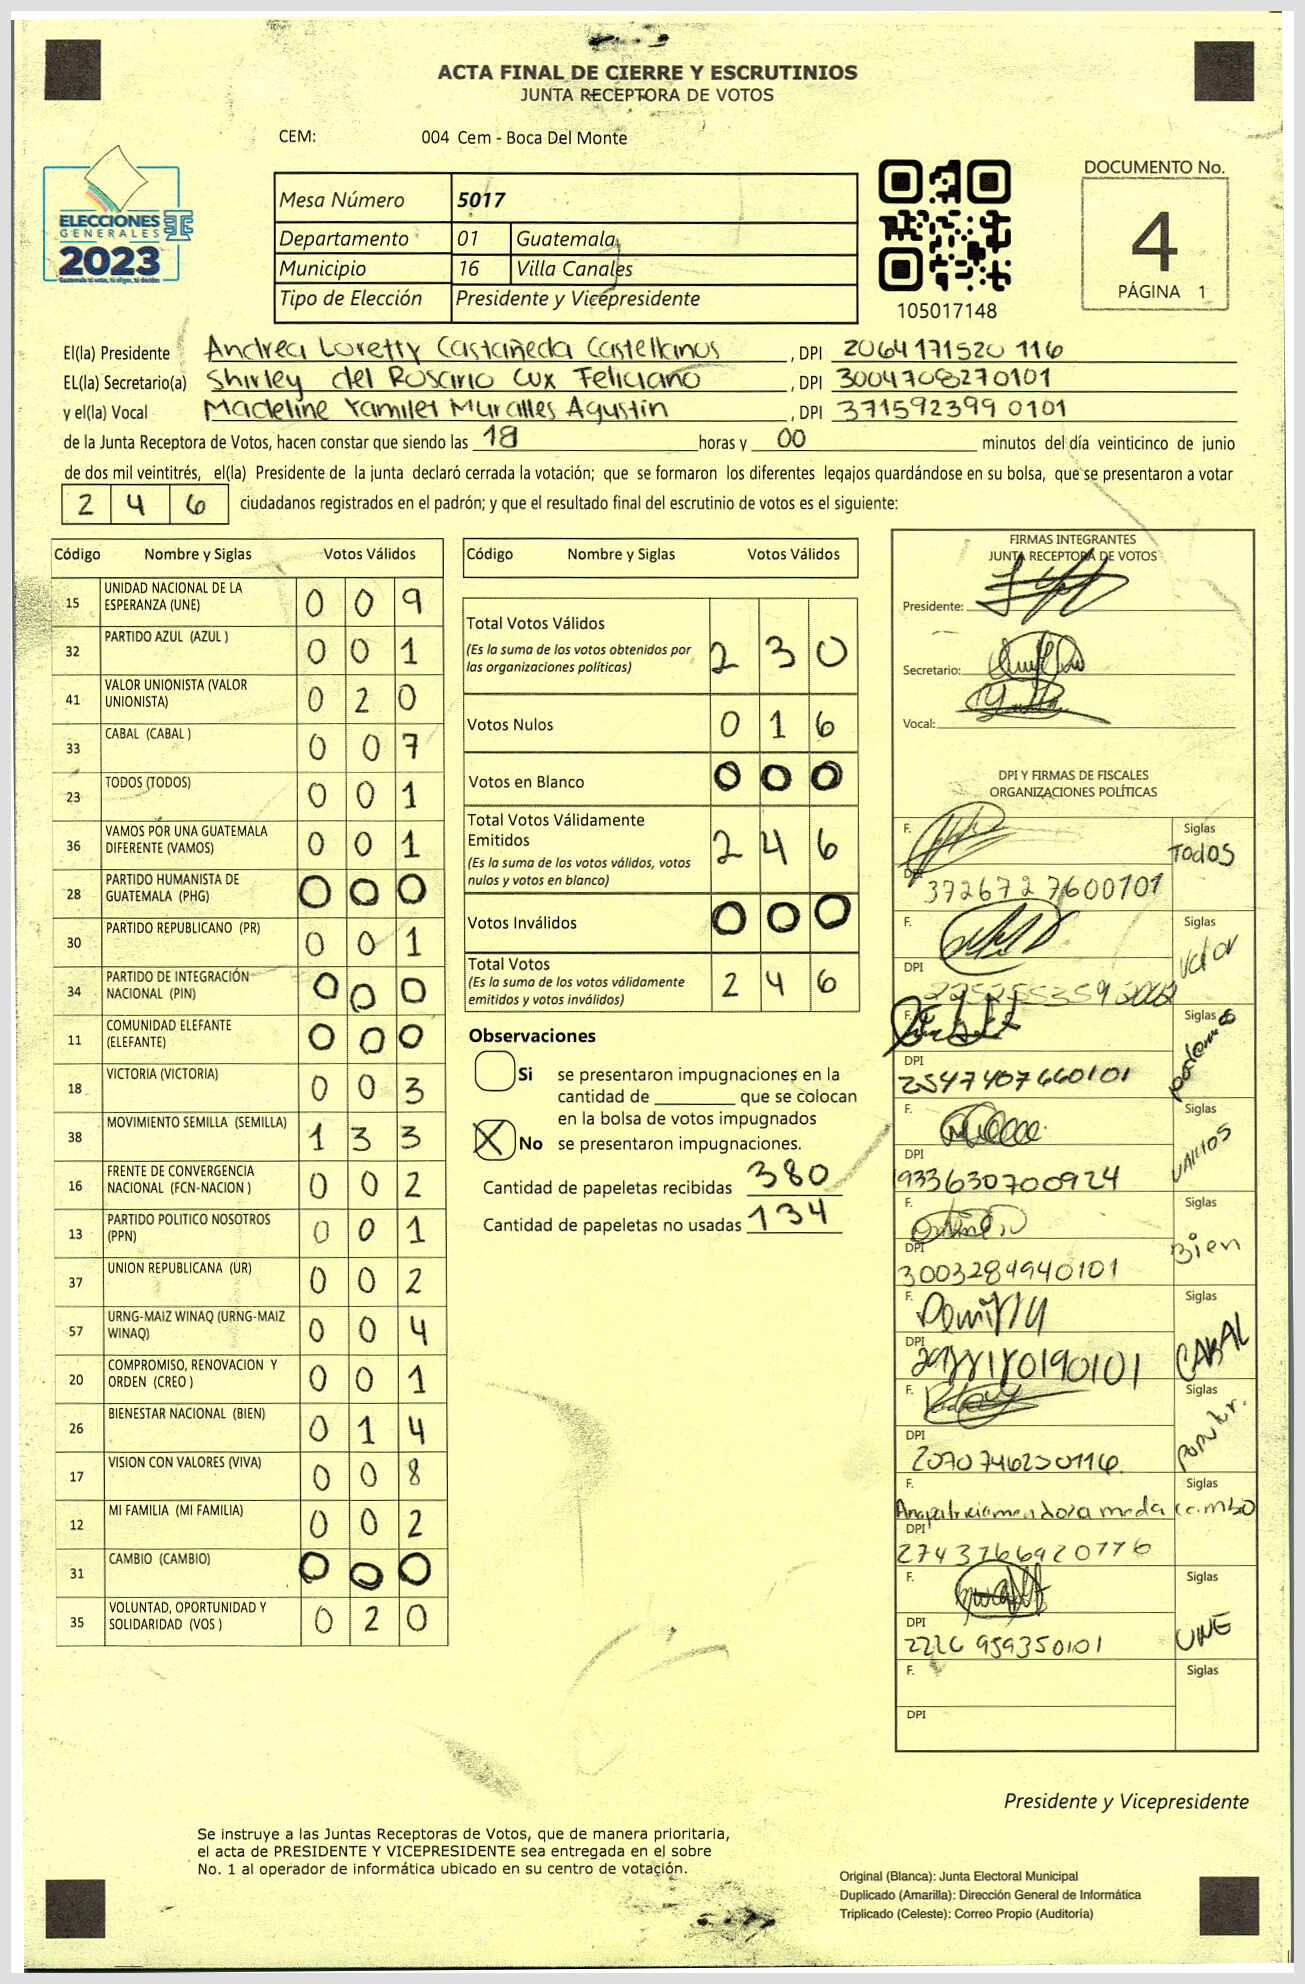 ACTA FINAL DE CIERRE Y ESCRUTINIOS
JUNTA RECEPTORA DE VOTOS
CEM: 004 Cem - Boca Del Monte
ELECCIONES
GENERALES
2023
Mesa Número 5017
Departamento 01 Guatemala
Municipio 16 Villa Canales
Tipo de Elección Presidente y Vicepresidente
105017148
DOCUMENTO No.
4
PÁGINA 1
El(la) Presidente Andrea Loretty Castañeda Castellanos , DPI 2064171520 116
EL(la) Secretario(a) Shirley del Rosario Cux Feliciano , DPI 3004708270101
y el(la) Vocal Madeline Yamilet Muralles Agustin , DPI 371592399 0101
de la Junta Receptora de Votos, hacen constar que siendo las 18 horas y 00 minutos del día veinticinco de junio
de dos mil veintitrés, el(la) Presidente de la junta declaró cerrada la votación; que se formaron los diferentes legajos guardándose en su bolsa, que se presentaron a votar
2 4 6 ciudadanos registrados en el padrón; y que el resultado final del escrutinio de votos es el siguiente:
Código Nombre y Siglas Votos Válidos
15 UNIDAD NACIONAL DE LA
ESPERANZA (UNE) 0 0 9
32 PARTIDO AZUL (AZUL ) 0 0 1
41 VALOR UNIONISTA (VALOR
UNIONISTA) 0 2 0
33 CABAL (CABAL ) 0 0 7
23 TODOS (TODOS) 0 0 1
36 VAMOS POR UNA GUATEMALA
DIFERENTE (VAMOS) 0 0 1
28 PARTIDO HUMANISTA DE
GUATEMALA (PHG) 0 0 0
30 PARTIDO REPUBLICANO (PR) 0 0 1
34 PARTIDO DE INTEGRACIÓN
NACIONAL (PIN) 0 0 0
11 COMUNIDAD ELEFANTE
(ELEFANTE) 0 0 0
18 VICTORIA (VICTORIA) 0 0 3
38 MOVIMIENTO SEMILLA (SEMILLA) 1 3 3
16 FRENTE DE CONVERGENCIA
NACIONAL (FCN-NACION ) 0 0 2
13 PARTIDO POLITICO NOSOTROS
(PPN) 0 0 1
37 UNION REPUBLICANA (UR) 0 0 2
57 URNG-MAIZ WINAQ (URNG-MAIZ
WINAQ) 0 0 4
20 COMPROMISO, RENOVACION Y
ORDEN (CREO ) 0 0 1
26 BIENESTAR NACIONAL (BIEN) 0 1 4
17 VISION CON VALORES (VIVA) 0 0 8
12 MI FAMILIA (MI FAMILIA) 0 0 2
31 CAMBIO (CAMBIO) 0 0 0
35 VOLUNTAD, OPORTUNIDAD Y
SOLIDARIDAD (VOS ) 0 2 0
Código Nombre y Siglas Votos Válidos
Total Votos Válidos
(Es la suma de los votos obtenidos por
las organizaciones políticas) 2 3 0
Votos Nulos 0 1 6
Votos en Blanco 0 0 0
Total Votos Válidamente
Emitidos
(Es la suma de los votos válidos, votos
nulos y votos en blanco) 2 4 6
Votos Inválidos 0 0 0
Total Votos
(Es la suma de los votos válidamente
emitidos y votos inválidos) 2 4 6
Observaciones
Si se presentaron impugnaciones en la
cantidad de ________ que se colocan
en la bolsa de votos impugnados
X No se presentaron impugnaciones.
Cantidad de papeletas recibidas 380
Cantidad de papeletas no usadas 134
FIRMAS INTEGRANTES
JUNTA RECEPTORA DE VOTOS
Presidente:
Secretario:
Vocal:
DPI Y FIRMAS DE FISCALES
ORGANIZACIONES POLÍTICAS
F. Siglas
Todos
DPI 372672 7600101
F. Siglas
Valor
DPI
F. Siglas
podemos
DPI 2547407660101
F. Siglas
VAMOS
DPI 1933630700924
F. Siglas
Bien
DPI 3003284940101
F. Siglas
CABAL
DPI
F. Siglas
DPI
F. Siglas
Cambo
DPI
F. Siglas
UNE
DPI 2226 959350101
F. Siglas
DPI
Presidente y Vicepresidente
Se instruye a las Juntas Receptoras de Votos, que de manera prioritaria,
el acta de PRESIDENTE Y VICEPRESIDENTE sea entregada en el sobre
No. 1 al operador de informática ubicado en su centro de votación.
Original (Blanca): Junta Electoral Municipal
Duplicado (Amarilla): Dirección General de Informática
Triplicado (Celeste): Correo Propio (Auditoría)